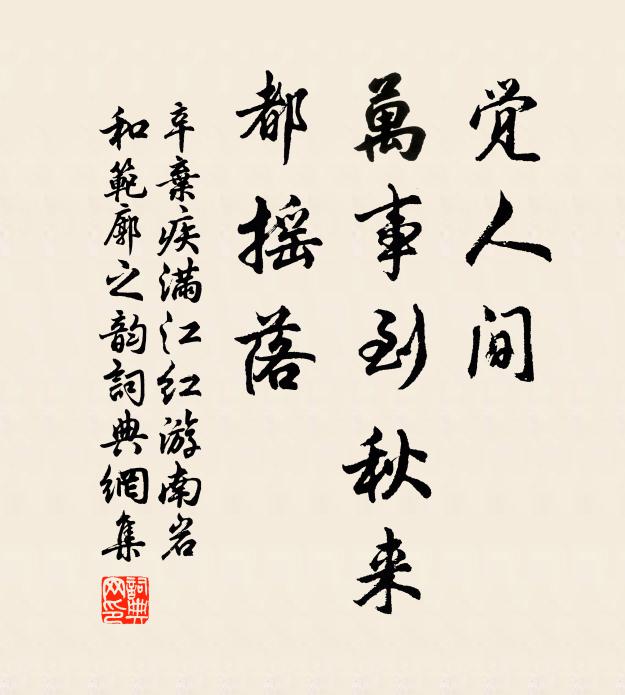 觉人间
萬事到秋来
都摇落
辛棄疾满江红游南岩
和範廓之韵詞典網集
詞典網印